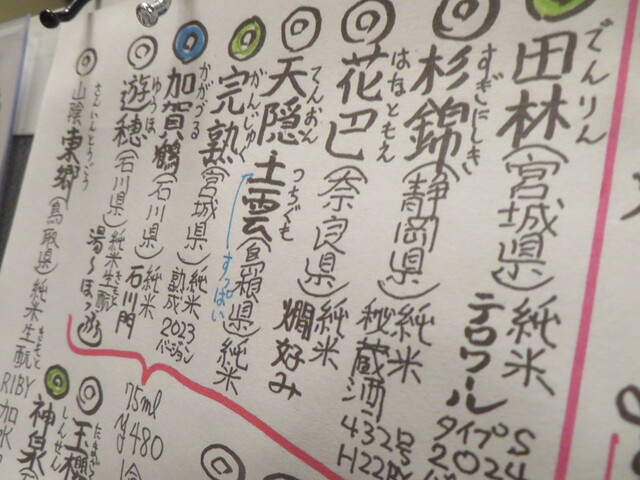 田林 でんりん (宮城県) 純米 テロワール タイプS 2024
杉錦 すぎにしき (静岡県) 純米 秘蔵酒 432号 H22BY
花巴 はなともえ (奈良県) 純米
天隠 てんおん 土雲 つちぐも (島根県) 純米 燗好み
完熟 かんじゅく (宮城県) 純米 熟成2023バージョン
すっぱい
加賀鶴 かがづる (石川県) 純米 石川門
遊穂 ゆうほ (石川県) 純米生酛 湯〜ほっ
山陰東郷 さんいんとうごう (鳥取県) 純米生酛 きもと RIBY 加水
75ml
¥480
玉櫻 たまざくら
神泉 しんせん